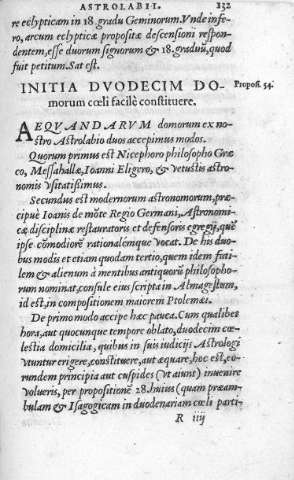 ASTROLABII. 132
re eclypticam in 18. gradu Geminorum. Vnde infe-
ro, arcum eclypticæ propositæ descensioni respon-
dentem, esse duorum signorum & 18. graduũ, quod
fuit petitum. Sat est.
INITIA DVODECIM DO- Propos. 34.
morum cœli facilè constituere.
AEQVANDARVM domorum ex no-
stro Astrolabio duos accepimus modos.
Quorum primus est Nicephoro philosopho Græ
co, Messahallæ, Ioanni Eligero, & vetustis astro-
nomis vsitatissimus.
Secundus est modernorum astronomorum, præ-
cipuè Ioannis de mõte Regio Germani, Astronomi-
cæ disciplinæ restauratoris et defensoris egregij, quẽ
ipse cõmodiorẽ rationalemque vocat. De his duo-
bus modis et etiam quodam tertio, quem idem futi-
lem & alienum à mentibus antiquorũ philosopho-
rum nominat, consule eius scripta in Almagestum,
id est, in compositionem maiorem Ptolemæi.
De primo modo accipe hæc pauca. Cum qualibet
hora, aut quocunque tempore oblato, duodecim cœ-
lestia domicilia, quibus in suis iudicijs Astrologi
vtuntur erigere, constituere, aut æquare, hoc est, eo-
rundem principia aut cuspides (vt aiunt) inuenire
volueris, per propositionẽ 28. huius (quam præam-
bulam & Isagogicam in duodenariam cœli parti-
R iiij